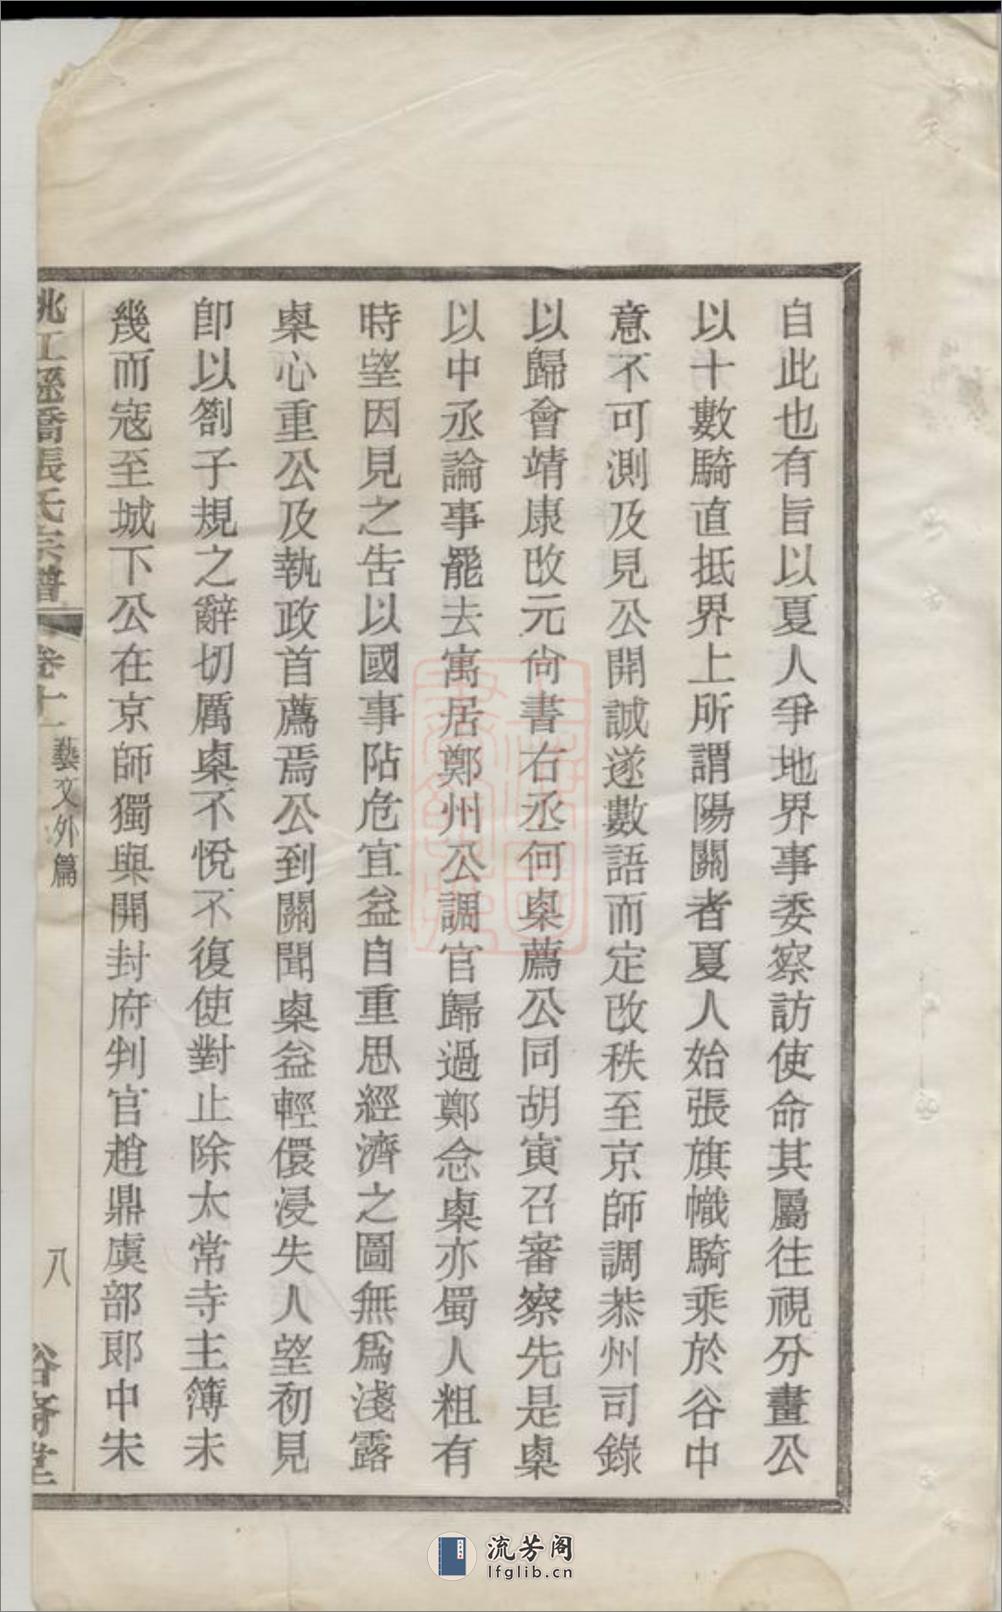 自此也有旨以夏人爭地界事委察訪使命其屬往視分畫公
以十數騎直抵界上所謂陽關者夏人始張旗幟騎乘於谷中
意不可測及見公開誠遂數語而定改秩至京師調恭州司錄
以歸會靖康改元尙書右丞何㮚薦公同胡寅召審察先是㮚
以中丞論事罷去寓居鄭州公調官歸過鄭念㮚亦蜀人粗有
時望因見之告以國事阽危宜益自重思經濟之圖無爲淺露
㮚心重公及執政首薦焉公到闕聞㮚益輕儇浸失人望初見
卽以劄子規之辭切厲㮚不悅不復使對止除太常寺主簿未
幾而寇至城下公在京師獨與開封府判官趙鼎虞部郞中宋
姚江 橋張氏宗譜 卷十 藝文外篇 八 裕齋堂
流芳阁
lfglib.cn